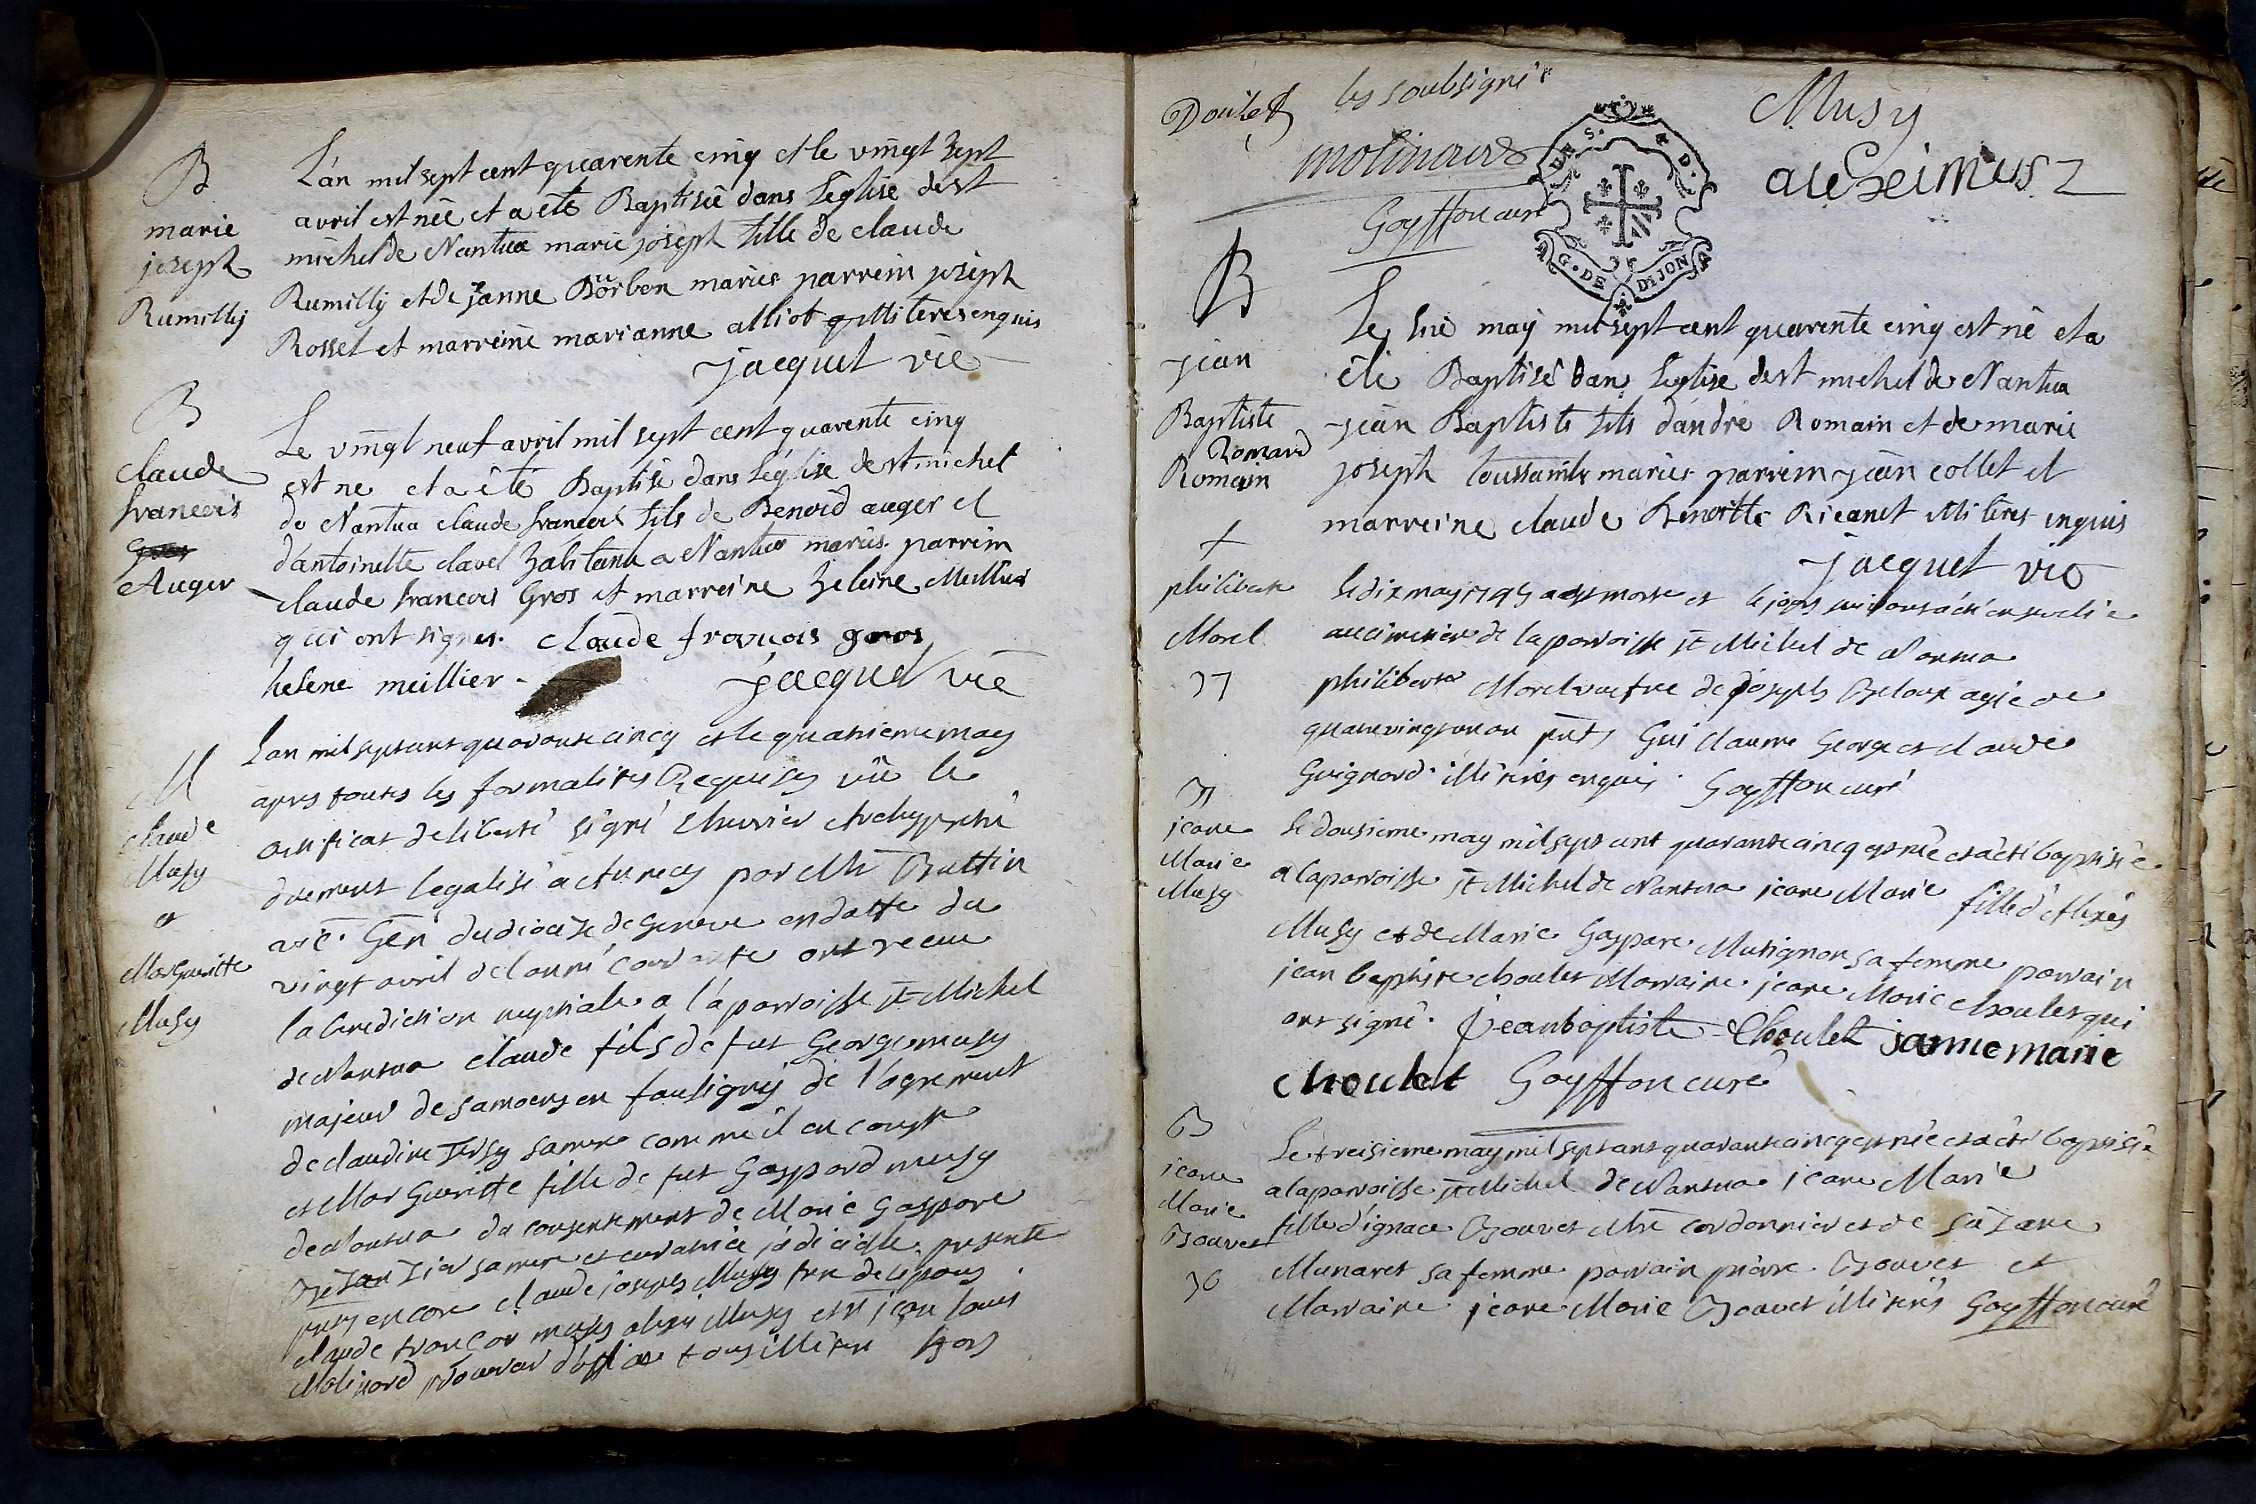 B
marie
joseph
Rumilly
L'an mil sept cent quarente cinq et le vingt sept
avril est née et a été Baptisée dans l'eglise de st
michel de Nantua marie joseph fille de claude
Rumilly et de janne Borbon mariés parrein joseph
Rosset et marreine marianne alliot illiteres enquis
jacquet vic
B
claude
francois
Auger
Le vingt neuf avril mil sept cent quarente cinq
est ne et a été Baptisé dans l'église de st michel
de Nantua claude francois fils de Benoid auger et
d'antoinette clavel habitants a Nantua mariés parrein
claude francois Gros et marreine helene Meillier
qui ont signes. claude françois gros
helene meillier. jacquet vic
M
claude
Musy
et
Margueritte
Musy
Lan mil sept cent quarante cincq et le quatrieme may
apres toutes les formalités Requises vû le
certificat de liberté signé chevrier Archyprétré
duement legalisé a Annecy par Mr Buttin
vic. Gen dudiocese de Geneve en datte du
vingt avril de l'anné courante ont receu
la benediction nuptiale a l'aparroisse St Michel
de Nantua claude fils de fut George musy
majeur de samoens en fausigny de l'agrement
de claudine sa mere comme il en conste
et Margueritte fille de fut Gaspard musy
de Nantua du consentement de Marie Gaspare
sa mere et curatrice judicielle presente
puts encore claude joseph Musy frere de lepoux
claude françois musy alexis Musy et Sr jean louis
Molinard procureur d'office tous illiteres hors
Doulet les soubsignés
Musy
molinard alexis musy
Goyffon curé
G. DE DIJON
B
jean
Baptiste
Romand
Romain
Le six may mil sept cent quarente cinq est né et a
été Baptisé dans l'eglise de st michel de Nantua
jean Baptiste fils d'andré Romain et de marie
joseph toussaints mariés parrein jean collet et
marreine claude Benoitte Ricanet illiteres enquis
jacquet vic
+
philiberte
Morel
37
le dix may 1745 est morte et le jour suivant a été ensevelie
au cimetiere de la parroisse St Michel de Nantua
philiberte Morel veufve de joseph Beloux agée de
quatrevingt un an puts Guillaume George et claude
Guignard illiteres enquis. Goyffon curé
B
jeane
Marie
Musy
Le dousieme may mil sept cent quarante cincq est née et a été baptisée
a laparroisse St Michel de Nantua jeane Marie fille d'Alexis
Musy et de Marie Gaspare Mutignon sa femme parrain
jean baptiste choulet Marraine jeane Marie choulet qui
ont signé. jean baptiste Choulet janne marie
choulet Goyffon curé
B
jeane
Marie
Bouvet
36
Le treisieme may mil sept cent quarante cincq est née et a été baptisée
a laparroisse St Michel de Nantua jeane Marie
fille d'ignace Bouvet Mre cordonnier et de Susane
Munaret sa femme parrain pierre Bouvet et
Marraine jeane Marie Bouvet illiterés Goyffon curé